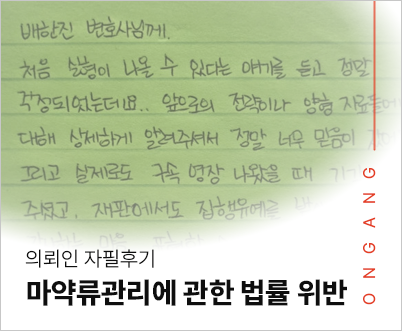 배한진 변호사님께.
처음 실형이 나올 수 있다는 얘기를 듣고 정말
걱정되었는데요.. 앞으로의 전략이나 양형 자료들에
대해 상세하게 알려주셔서 정말 너무 믿음이
그리고 실제로도 구속 영장 나왔을 때
주셨고, 재판에서도 집행유예를
의뢰인 자필후기
마약류관리에 관한 법률 위반
ONGANG